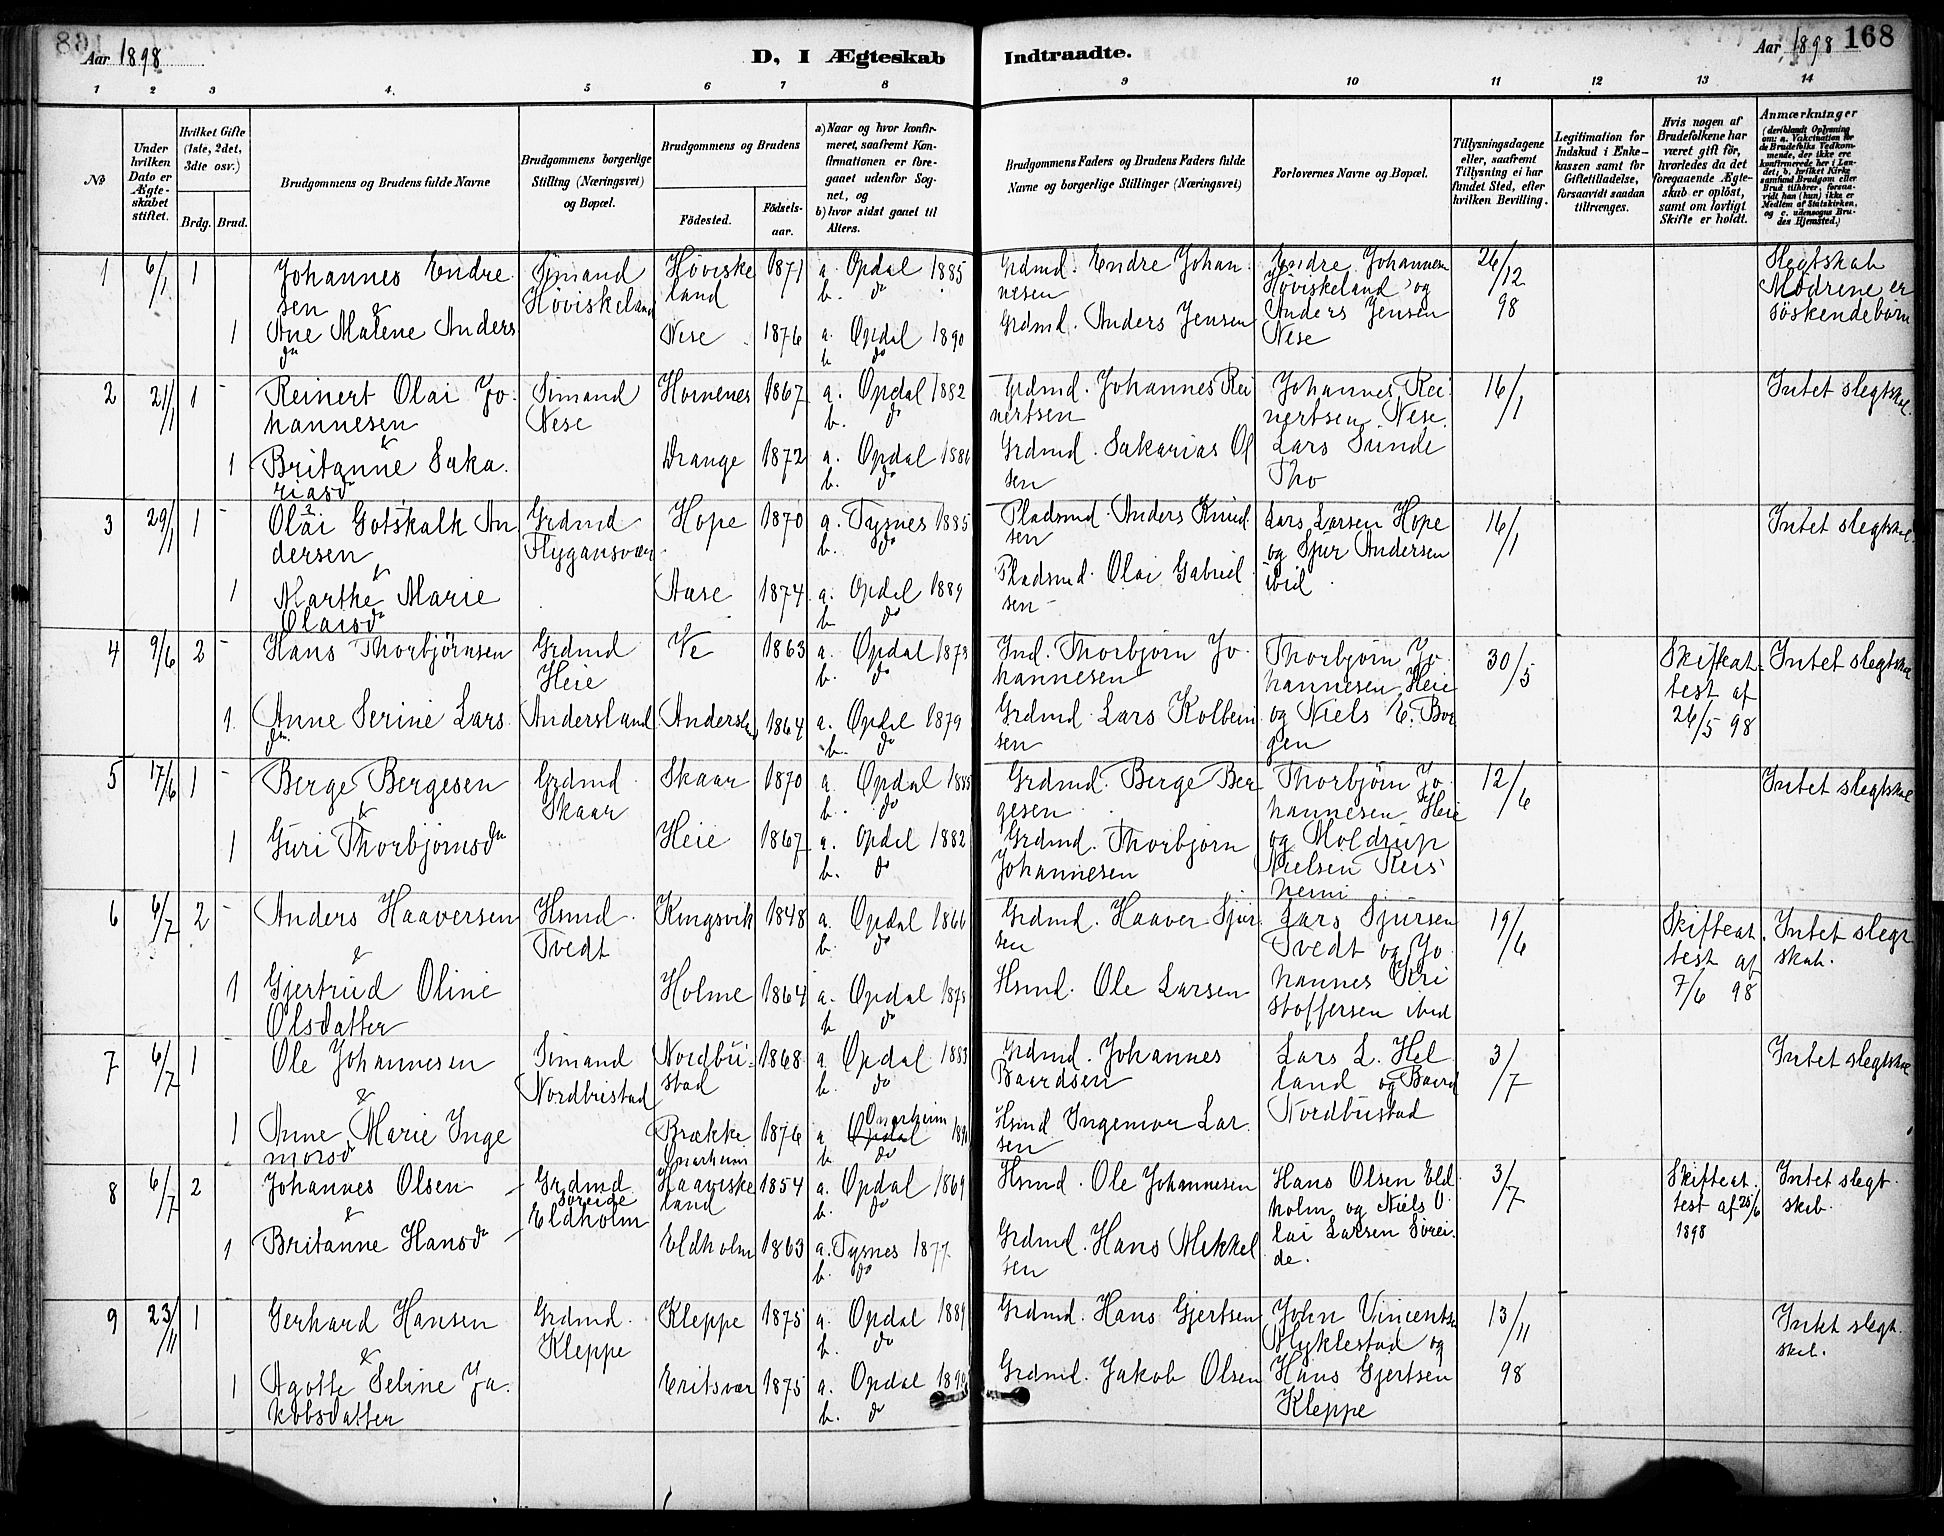 Aar 1898
D, I Ægteskab Indtraadte.
Aar 1898 168
1 2 3 4. 5 6 7 8 9 10 11 12 13 14
No
Under hvilken Dato er Ægteskabet stiftet.
Hvilket Gifte (1ste, 2det, 3dte osv.)
Brdg. Brud.
Brudgommens og Brudens fulde Navne
Brudgommens borgerlige Stilling (Næringsvei) og Bopæl.
Brudgommens og Brudens
Födested. Födselsaar.
a) Naar og hvor konfirmeret, saafremt Konfirmationen er foregaaet udenfor Sognet, og
b) hvor sidst gaaet til Alters.
Brudgommens Faders og Brudens Faders fulde Navne og borgerlige Stillinger (Næringsvei)
Forlovernes Navne og Bopæl.
Tillysningsdagene eller, saafremt Tillysning ei har fundet Sted, efter hvilken Bevilling.
Legitimation for Indskud i Enkekassen samt for Giftetilladelse, forsaavidt saadan tiltrænges.
Hvis nogen af Brudefolkene har været gift för, hvorledes da det foregaaende Ægteskab er oplöst, samt om lovligt Skifte er holdt.
Anmærkninger
(deriblandt Oplysning om: a. Vakcination for de Brudefolks Vedkommende, der ikke ere konfirmerede her i Landet; b. hvilket Kirkesamfund Brudgom eller Brud tilhörer, forsaavidt han (hun) ikke er Medlem af Statskirken, og c. udensogns Brudes Hjemsted.)
1 6/1 1 Johannes Endresen Sömand Höviskeland Höviskeland 1871 a. Opdal 1885 b. do Grdmd. Endre Johannesen Endre Johannesen Höviskeland og 26/12 98 Slegtskab Mödrene er söskendebörn
&
1 Ane Malene Andersdr Nese 1876 a. Opdal 1890 b do Grdmd. Anders Jensen Anders Jensen Nese
2 21/1 1 - Reinert Olai Johannesen Sömand Nese Hornenes 1867 a. Opdal 1882 b. do Grdmd. Johannes Reinertsen Johannes Reinertsen Nese. 16/1 Intet slegtskab.
&
1 Britanne Sakariasdr Drange 1872 a. Opdal b. do Grdmd. Sakarias Olsen Lars Sunde Tho
3 29/1 1 - Olai Gotskalk Andersen Grdmd Flygansvær Hope 1870 a. Tysnes 1885 b. do Pladsmd. Anders Knudsen Lars Larsen Hope og Sjur Andersen ibid 16/1 Intet slegtskab.
&
1 Marthe Marie Olaisdr Aase 1874 a. Opdal 1889 b do Pladsmd. Olai Gabrielsen
4 9/6 2 - Hans Thorbjörnsen Grdmd Heie Ve 1863 a. Opdal b. do Ind. Thorbjörn Johannesen Thorbjörn Johannesen Heie 30/5 Skifteattest af 26/5 98 Intet slegtskab
1. Anne Serine Larsdr. Andersland Andersland 1864 a. Opdal 1879 b. do Grdmd. Lars Kolbeinsen og Niels E. Borgen
5 17/6 1 - Berge Bergesen Grdmd. Skaar Skaar 1870 a. Opdal 1885 b. do Grdmd. Berge Bergesen Thorbjörn Johannesen Heie 12/6 Intet slegtskab
&
1 Guri Thorbjörnsdr Heie 1867 a. Opdal 1882 b. do Grdmd. Thorbjörn Johannesen og Moldrup Nielsen
6 6/7 2 - Anders Haaversen Hsmd. Tvedt Kongsvik 1848 a. Opdal 1866 b. do Grdmd. Haaver Sjursen Lars Sjursen Tvedt og Johannes 19/6 Skifteattest af 7/6 98 Intet slegtskab.
&
1 Gjertrud Oline Olsdatter Holme 1864 a. Opdal b do Hsmd. Ole Larsen Kristoffersen ibid
7 6/7 1 - Ole Johannesen Sömand Nordbustad Nordbustad 1868 a Opdal 1883 b. do Grdmd. Johannes Baardsen Lars L. Helland og Baard Nordbustad 3/7 Intet slegtskab
&
1 Anne Marie Ingemorsdr Brække Onarheim 1876 a. Onarheim b do Hsmd Ingemor Larsen
8 6/7 2 - Johannes Olsen - Grdmd. Söreide Eldholm Haaviskeland 1854 a. Opdal 1869 b. do Hsmd. Ole Johannesen Hans Olsen Eldholm og Niels O 3/7 Skifteattest af 25/6 1898 Intet slegtskab.
&
1 Britanne Hansdr - Eldholm 1863 a. Tysnes 1877. b. do Grdmd. Hans Mikkelsen lai Larsen Söreide.
9 23/11 1 Gerhard Hansen Grdmd. Kleppe Kleppe 1875 a. Opdal 1889 b. do Grdmd. Hans Gjertsen John Vincentsen Myklestad og 13/11 98 Intet slegtskab.
&
1 Agothe Seline Jakobsdatter Eritsvær 1875 a. Opdal 1890 b. do Grdmd. Jakob Olsen Hans Gjertsen Kleppe